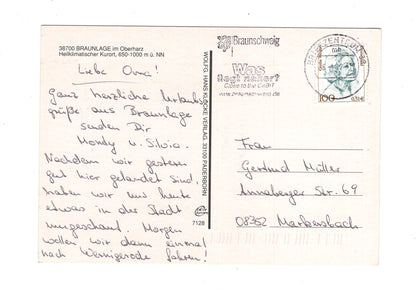 38700 BRAUNLAGE im Oberharz
Heilklimatischer Kurort, 650-1000 m ü. NN
Liebe Oma!
Ganz herzliche Urlaubs
grüße aus Braunlage
senden Dir
Mandy u. Silvio.
Nachdem wir gestern
gut hier gelandet sind,
haben wir uns heute
etwas in der Stadt
umgeschaut. Morgen
wollen wir dann einmal
nach Wernigerode fahren!
WOLFG. HANS KLOCKE VERLAG, 33100 PADERBORN
7128
Braunschweig
Was
liegt näher?
BRIEFZENTRUM
100
0,51€
Frau
Gertrud Müller
Annaberger Str. 69
08352 Markersbach